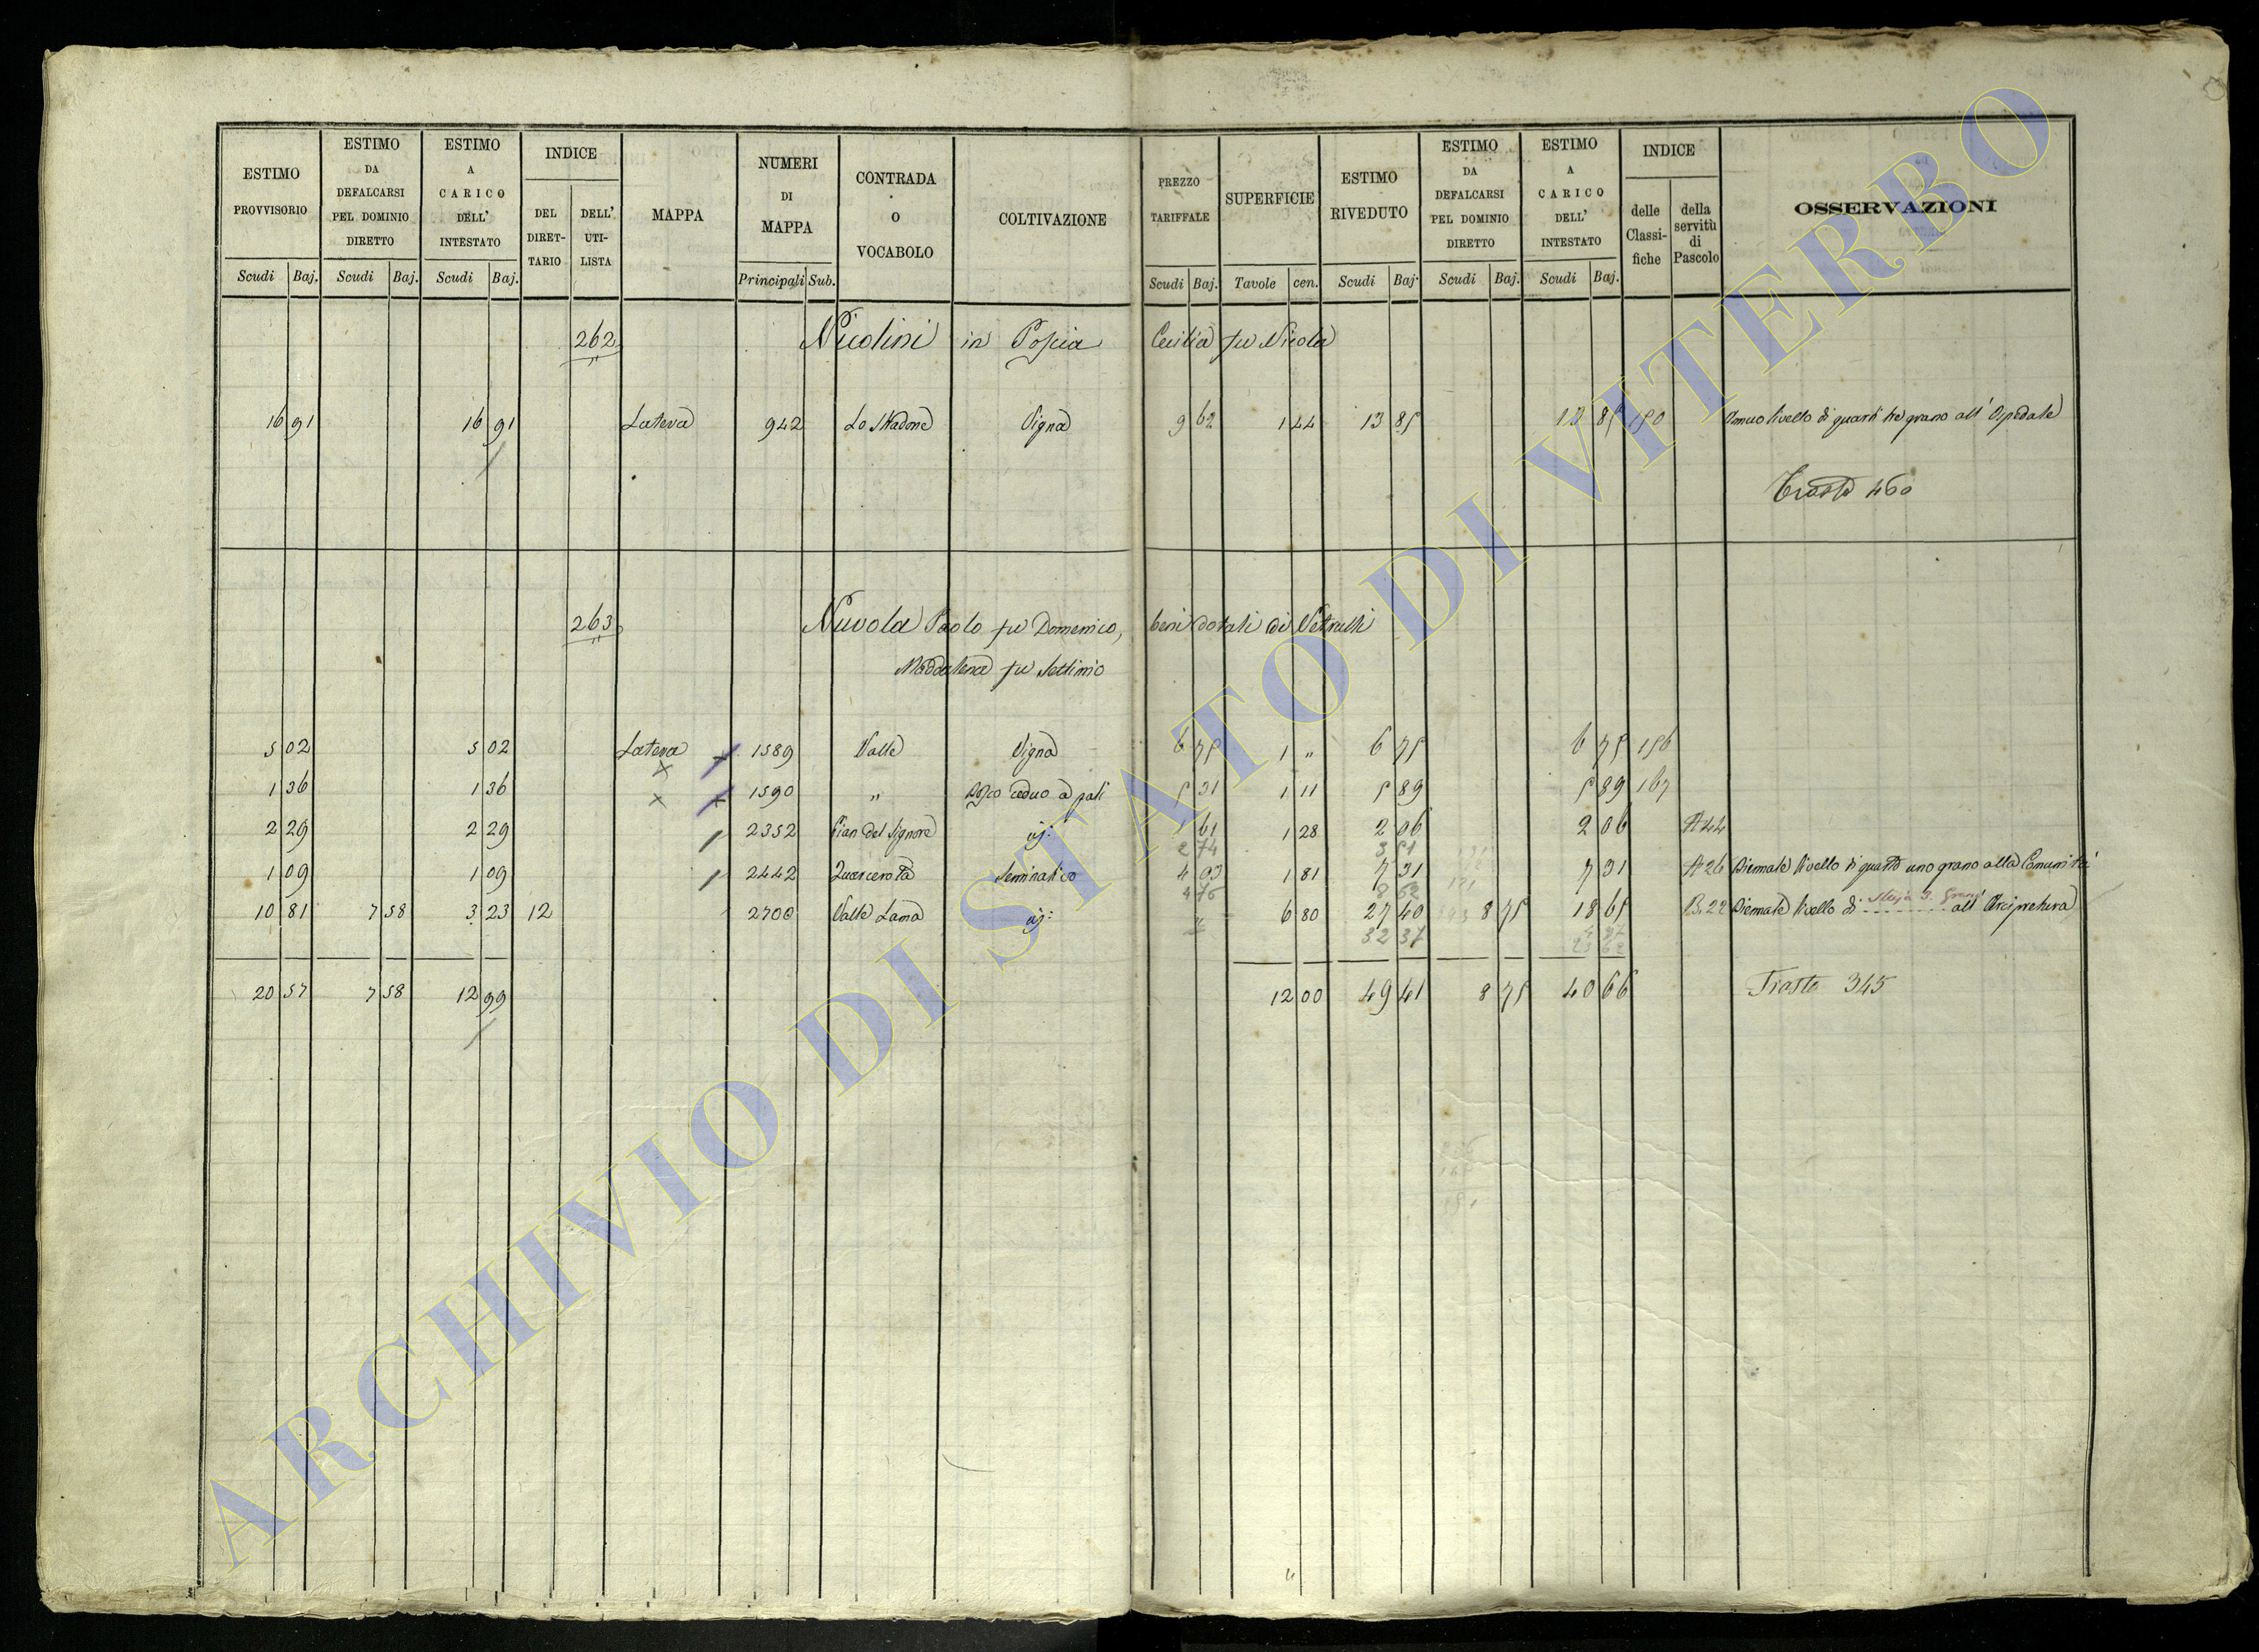 ESTIMO PROVVISORIO
ESTIMO DA DEFALCARSI PEL DOMINIO DIRETTO
ESTIMO A CARICO DELL' INTESTATO
INDICE
DEL DIRET-TARIO
DELL' UTI-LISTA
MAPPA
NUMERI DI MAPPA
CONTRADA O VOCABOLO
COLTIVAZIONE
PREZZO TARIFFALE
SUPERFICIE
ESTIMO RIVEDUTO
ESTIMO DA DEFALCARSI PEL DOMINIO DIRETTO
ESTIMO A CARICO DELL' INTESTATO
INDICE
delle Classi-fiche
della servitù di Pascolo
OSSERVAZIONI
Scudi Baj. Scudi Baj. Scudi Baj. Principali Sub. Scudi Baj. Tavole cen. Scudi Baj. Scudi Baj. Scudi Baj.
262 Nicolini in Poscia Cecilia fu Nicola
16 91 16 91 Latera 942 Lo Stradone Vigna 9 62 1 44 13 85 13 85 150 Annuo livello di quarti tre grano all' Ospedale
Trasto 460
263 Nuvola Paolo fu Domenico, beni dotali di Vetralli
Maddalena fu Settimio
5 02 5 02 Latera 1589 Valle Vigna 6 75 1 " 6 75 6 75 156
1 36 1 36 1590 " Bosco ceduo a pali 5 31 1 11 5 89 5 89 167
2 29 2 29 2352 Pian del Signore id: 1 61 1 28 2 06 2 06 A 44
2 74 3 51
1 09 1 09 2442 Quercerota Seminativo 4 03 1 81 7 31 7 31 A 26 Biennale livello di quarto uno grano alla Comunità
4 76 8 62
10 81 7 58 3 23 12 2700 Valle Lama id: 6 80 27 40 8 75 18 65 B. 22 Biennale livello di Staja 3. grano all' Arcipretura
32 37
20 57 7 58 12 99 12 00 49 41 8 75 40 66 Trasto 345
ARCHIVIO DI STATO DI VITERBO